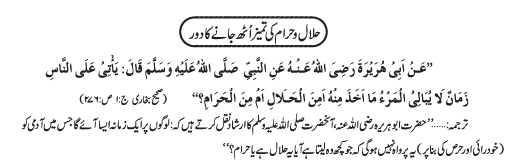 حلال وحرام کی تمیز اُٹھ جانے کا دور
”عَنْ اَبِیْ ھُرَیْرَۃَ رَضِیَ اللہُ عَنْہُ عَنِ النَّبِیِّ صَلَّی اللہُ عَلَیْہِ وَسَلَّمَ قَالَ: یَأْتِیْ عَلَی النَّاسِ
زَمَانٌ لَا یُبَالِی الْمَرْءُ مَا اَخَذَ مِنْہُ اَمِنَ الْحَلَالِ اَمْ مِنَ الْحَرَامِ؟“ (صحیح بخاری ج:۱ ص:۲۷۶)
ترجمہ:……”حضرت ابو ہریرہ رضی اللہ عنہ، آنحضرت صلی اللہ علیہ وسلم کا ارشاد نقل کرتے ہیں کہ: لوگوں پر ایک زمانہ ایسا آئے گا جس میں آدمی کو
(خود رائی اور حرص کی بنا پر) یہ پروا نہیں ہوگی کہ جو کچھ وہ لیتا ہے آیا یہ حلال ہے یا حرام؟“